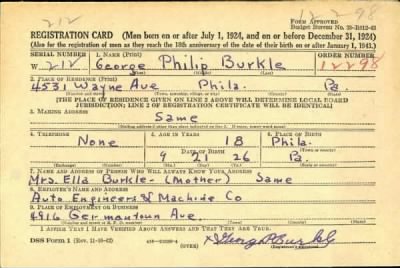 212
12298
Form Approved
Budget Bureau No. 33-R012-42
REGISTRATION CARD—(Men born on or after July 1, 1924, and on or before December 31, 1924)
(Also for the registration of men as they reach the 18th anniversary of the date of their birth on or after January 1, 1943.)
SERIAL NUMBER
1. NAME (Print)
ORDER NUMBER
W 212 George Philip Burkle 12298
(First) (Middle) (Last)
2. PLACE OF RESIDENCE (Print)
4531 Wayne Ave Phila. Pa.
(Number and street) (Town, township, village, or city) (County) (State)
[THE PLACE OF RESIDENCE GIVEN ON LINE 2 ABOVE WILL DETERMINE LOCAL BOARD
JURISDICTION; LINE 2 OF REGISTRATION CERTIFICATE WILL BE IDENTICAL]
3. MAILING ADDRESS
Same
4. TELEPHONE
5. AGE IN YEARS
6. PLACE OF BIRTH
None 18 Phila.
DATE OF BIRTH
9 21 26 Pa.
(Exchange) (Number) (Mo.) (Day) (Yr.) (State or country)
7. NAME AND ADDRESS OF PERSON WHO WILL ALWAYS KNOW YOUR ADDRESS
Mrs. Ella Burkle- (Mother) Same
8. EMPLOYER'S NAME AND ADDRESS
Auto Engineers & Machine Co
9. PLACE OF EMPLOYMENT OR BUSINESS
4916 Germantown Ave.
(Number and street or R. F. D. number) (Town) (County) (State)
I AFFIRM THAT I HAVE VERIFIED ABOVE ANSWERS AND THAT THEY ARE TRUE.
DSS Form 1 (OVER) X George P Burkle
(Registrant's signature)